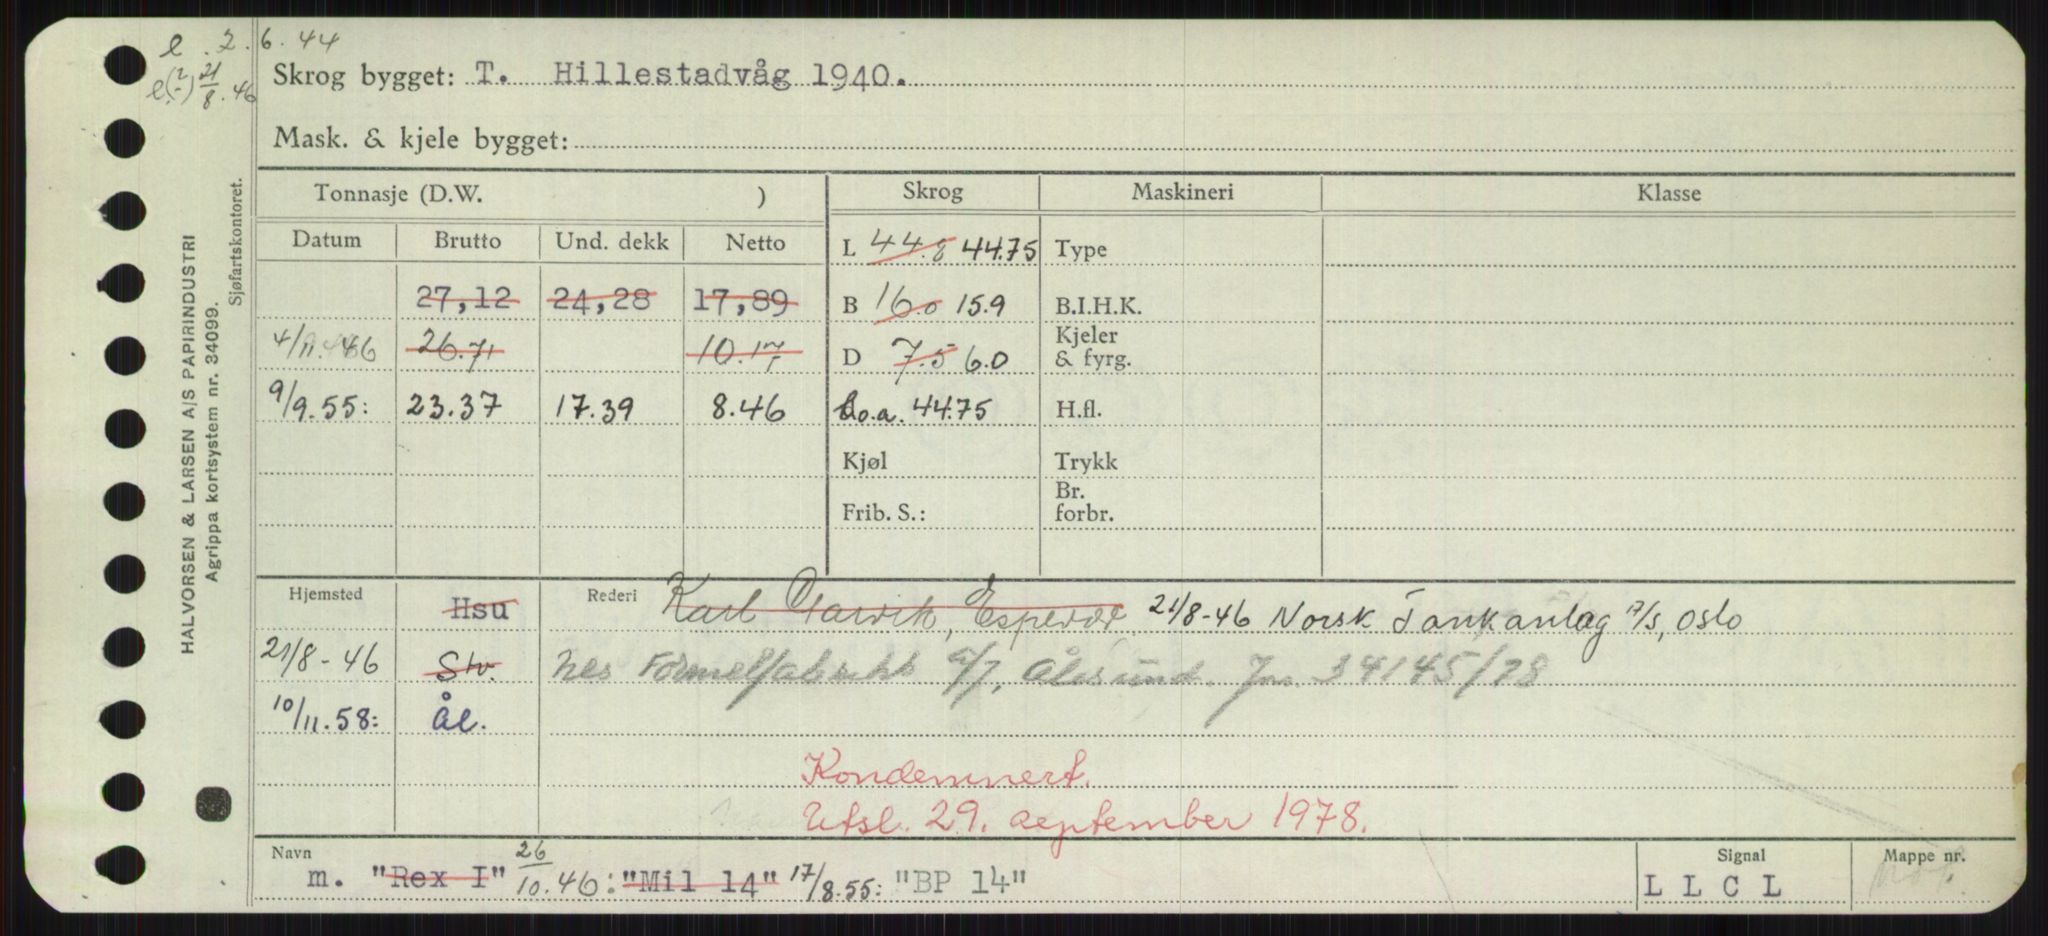 e . 2. 6. 44
e(²-) 21/8. 46
Skrog bygget: T. Hillestadvåg 1940.
Mask. & kjele bygget:
HALVORSEN & LARSEN A/S PAPIRINDUSTRI
Agrippa kortsystem nr. 34099.
Sjøfartskontoret.
Tonnasje (D.W. ) Skrog Maskineri Klasse
Datum Brutto Und. dekk Netto
L 44.8 44.75 Type
27,12 24,28 17,89
B 16.0 15.9 B.I.H.K.
4/11.46 26.71 10.17
D 7.5 6.0 Kjeler & fyrg.
9/9.55: 23.37 17.39 8.46 l.o.a. 44.75 H.fl.
Kjøl Trykk
Frib. S.: Br. forbr.
Hjemsted Hsu Rederi Karl , Espevær 21/8-46 Norsk Tankanlag A/S, Oslo
21/8-46 Stv. A/S, Ålesund. Jnr. 34145/78
10/11.58: Ål.
Kondemnert.
Utsl. 29. september 1978.
Navn Signal Mappe nr.
m. "Rex I" 26/10.46: "Mil 14" 17/8.55: "BP 14" L L C L